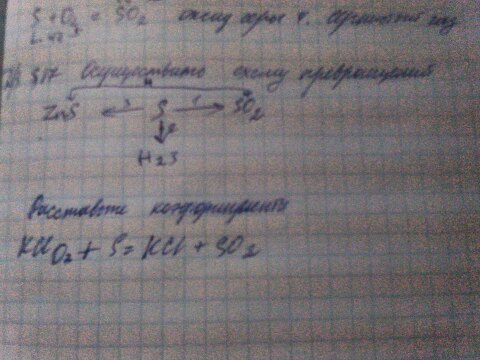 S + O2 = SO2 оксид серы 4. сернистый газ
§17 Осуществить схему превращений
4
ZnS ←3 S 1→ SO2
↓2
H2S
Расставьте коэффициенты
KClO2 + S = KCl + SO2